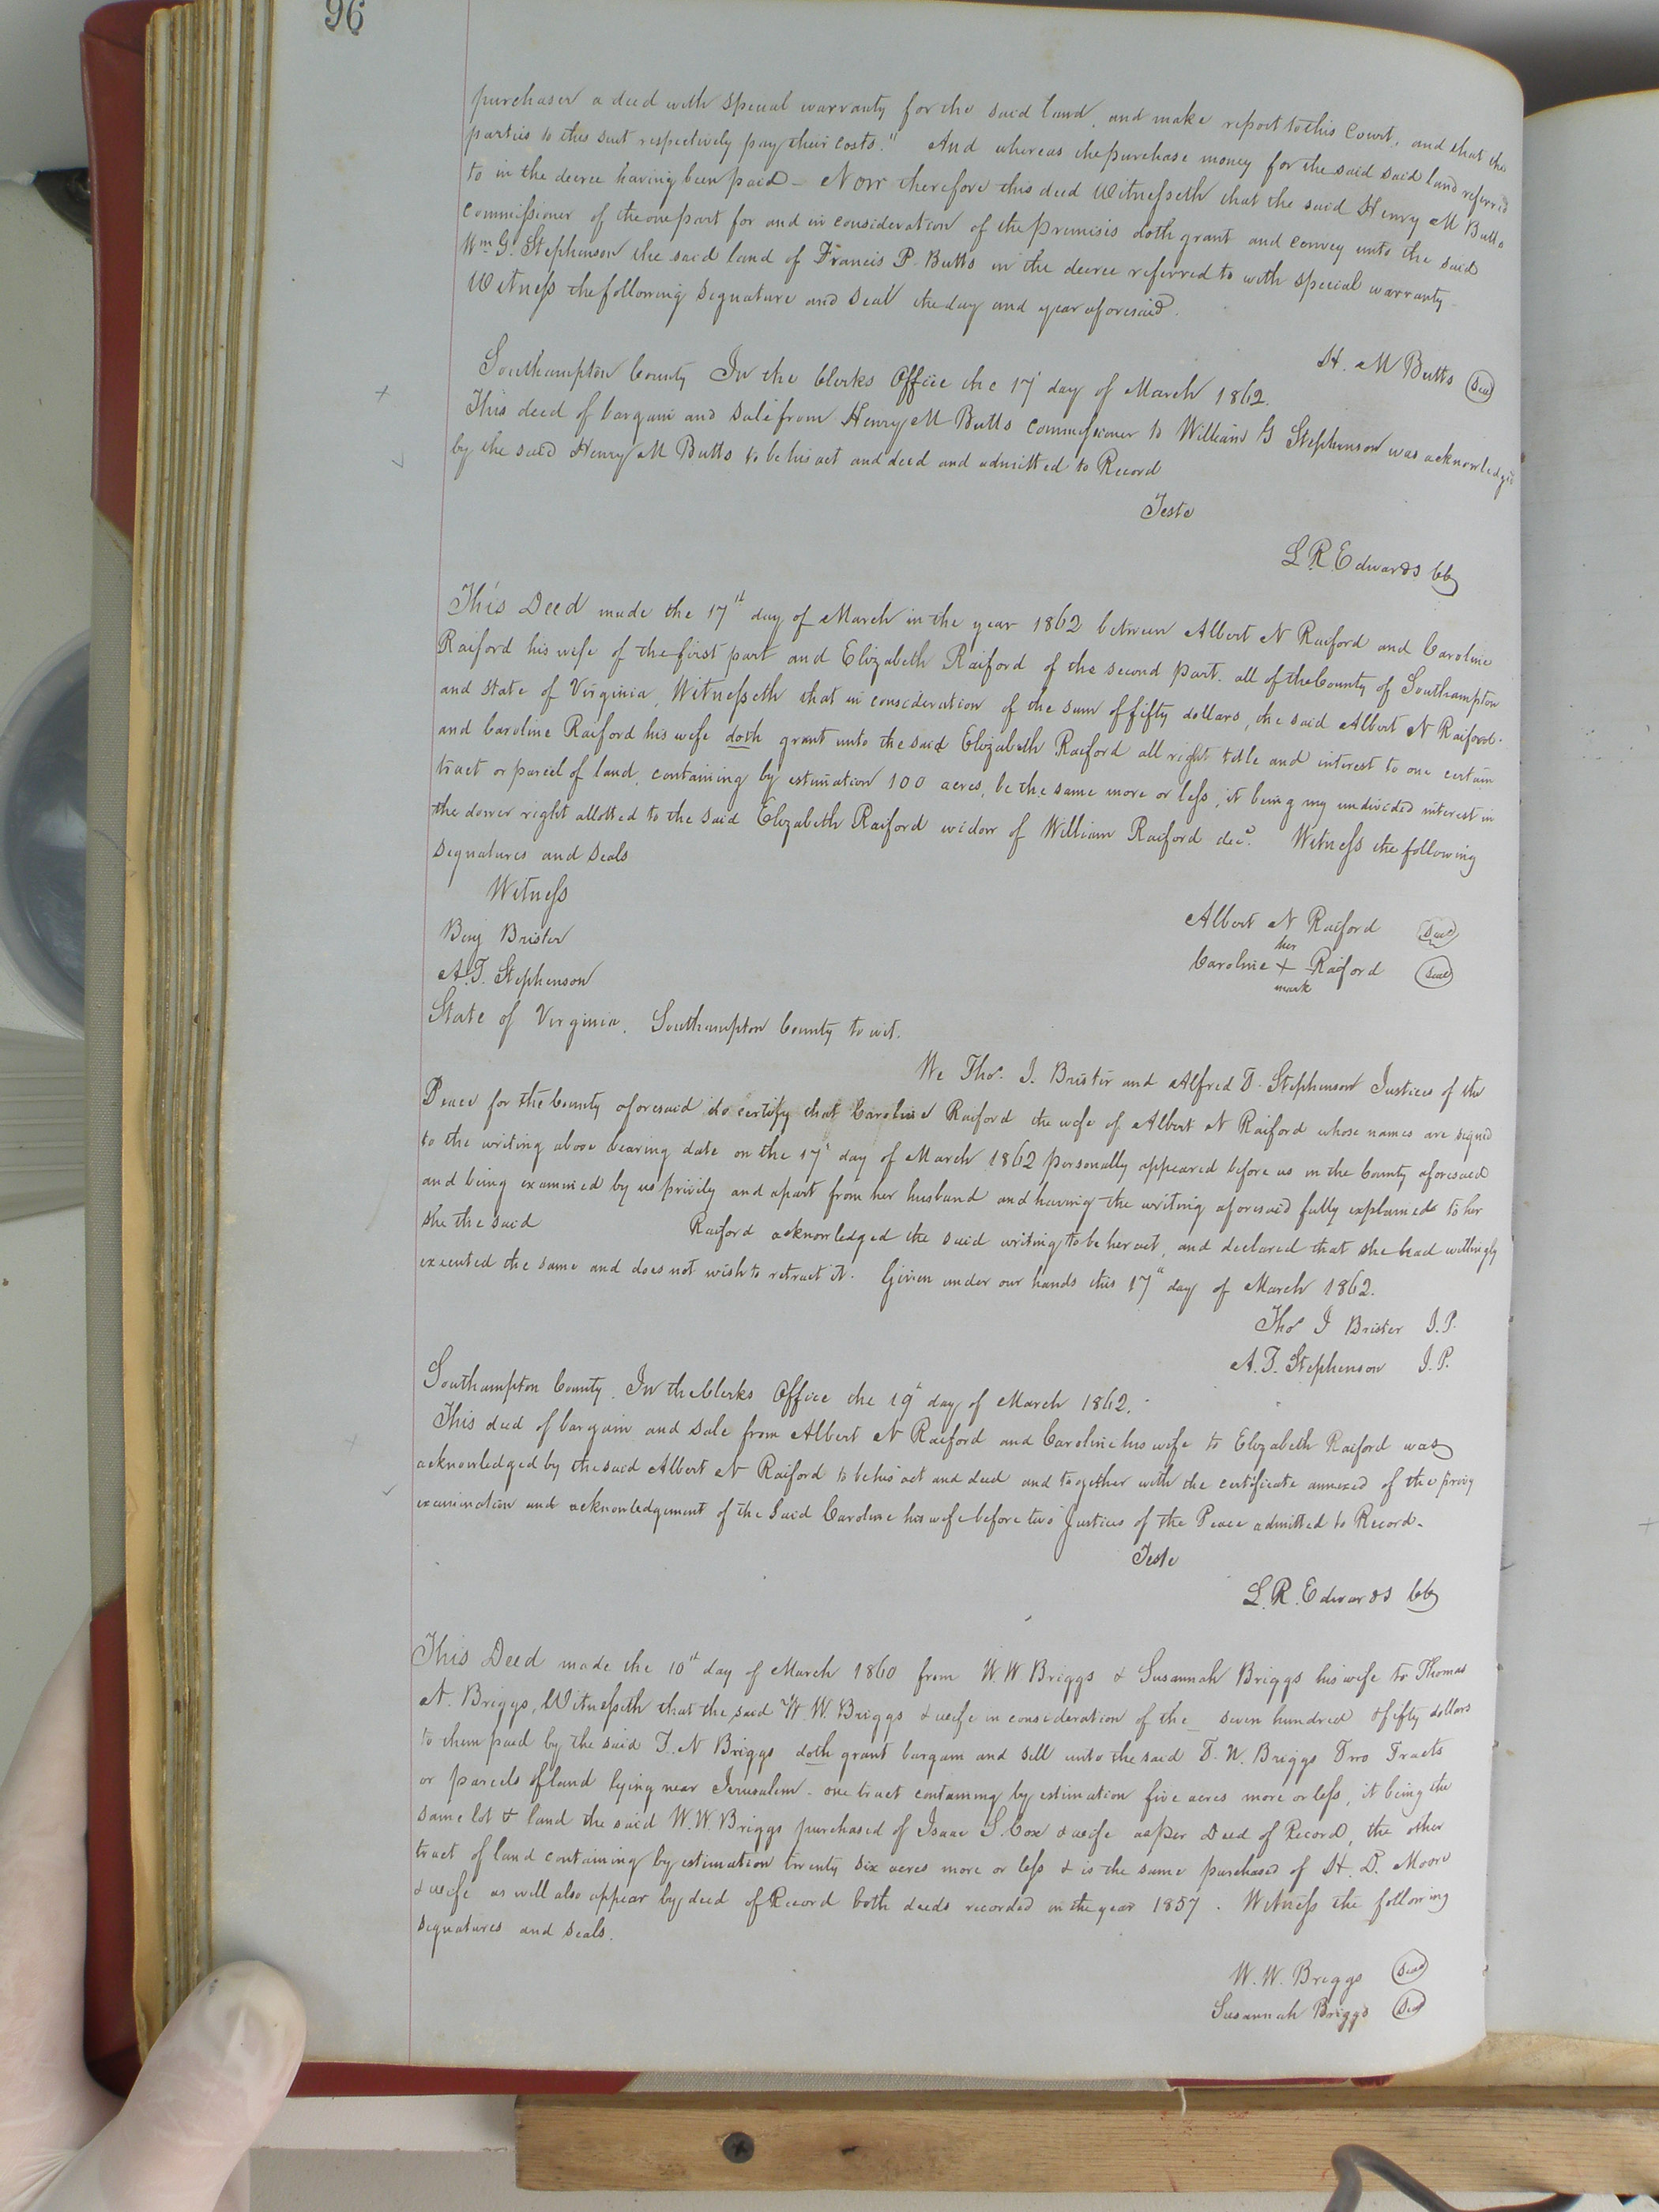 96
purchaser a deed with special warranty for the said land, and make report to this Court, and that the
parties to this suit respectively pay their costs." And whereas the purchase money for the said said land referred
to in the decree having been paid - Now therefore this deed Witnesseth that the said Henry M Butts
Commissioner of the one part for and in consideration of the premises doth grant and convey unto the said
Wm G. Stephenson the said land of Francis P. Butts in the decree referred to with special warranty
Witness the following signature and seal the day and year aforesaid.
H. M Butts Seal
Southampton County In the Clerks Office the 17 day of March 1862.
This deed of bargain and sale from Henry M Butts commissioner to William G Stephenson was acknowledged
by the said Henry M Butts to be his act and deed and admitted to Record
Teste
L. R. Edwards
This Deed made the 17th day of March in the year 1862 between Albert N Raiford and Caroline
Raiford his wife of the first part and Elizabeth Raiford of the second part. all of the County of Southampton
and state of Virginia, Witnesseth that in consideration of the sum of fifty dollars, the said Albert N Raiford
and Caroline Raiford his wife doth grant unto the said Elizabeth Raiford all right title and interest to one certain
tract or parcel of land, containing by estimation 100 acres, be the same more or less, it being my undivided interest in
the dower right allotted to the said Elizabeth Raiford widow of William Raiford decd. Witness the following
signatures and seals
Witness
Benj Brister
A. T. Stephenson
Albert N Raiford Seal
her
Caroline + Raiford Seal
mark
State of Virginia, Southampton County to wit.
We Thos. J. Brister and Alfred T. Stephenson Justices of the
Peace for the County aforesaid do certify that Caroline Raiford the wife of Albert N Raiford whose names are signed
to the writing above bearing date on the 17 day of March 1862 personally appeared before us in the County aforesaid
and being examined by us privily and apart from her husband and having the writing aforesaid fully explained to her
she the said Raiford acknowledged the said writing to be her act, and declared that she had willingly
executed the same and does not wish to retract it. Given under our hands this 17th day of March 1862.
Thos J Brister J.P.
A. T. Stephenson J.P.
Southampton County. In the Clerks Office the 19th day of March 1862.
This deed of bargain and sale from Albert N Raiford and Caroline his wife to Elizabeth Raiford was
acknowledged by the said Albert N Raiford to be his act and deed and together with the certificate annexed of the privy
examination and acknowledgement of the Said Caroline his wife before two Justices of the Peace admitted to Record.
Teste
L. R. Edwards
This Deed made the 10th day of March 1860 from W. W Briggs & Susannah Briggs his wife to Thomas
N. Briggs, Witnesseth that the said W. W. Briggs & wife in consideration of the seven hundred & fifty dollars
to them paid by the said T. N Briggs doth grant bargain and sell unto the said T. N. Briggs Two Tracts
or parcels of land lying near Jerusalem - one tract containing by estimation five acres more or less, it being the
same lot & land the said W. W. Briggs purchased of Isaac S. Cox & wife as per Deed of Record, the other
tract of land containing by estimation twenty six acres more or less & is the same purchased of H. D. Moore
& wife as will also appear by deed of Record both deeds recorded in the year 1857. Witness the following
signatures and seals.
W. W. Briggs Seal
Susannah Briggs Seal